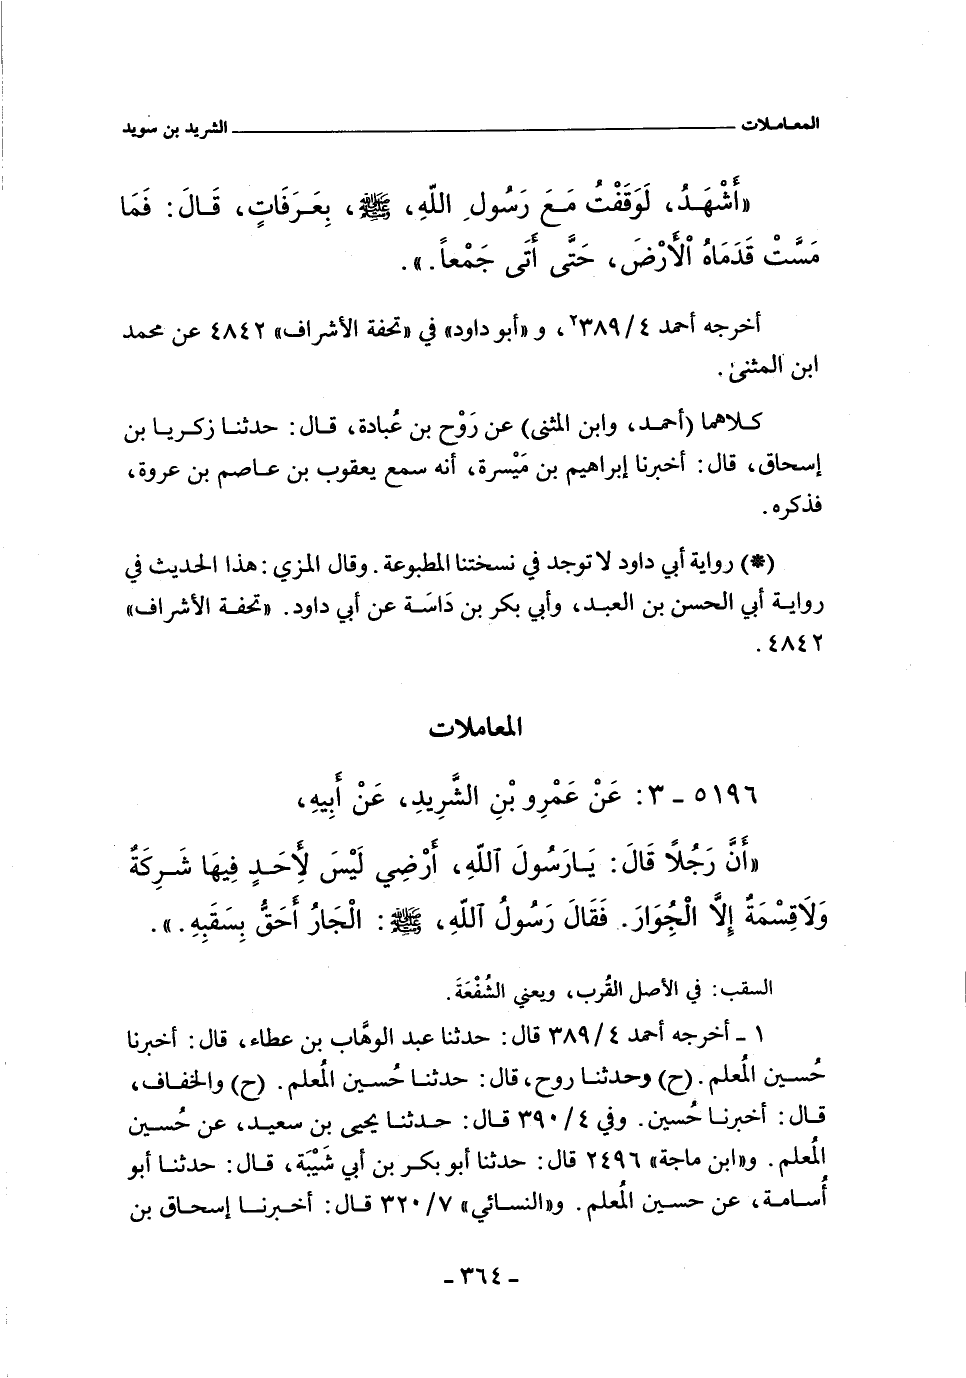 المعاملات ــــــــــــــــــــــــــــــــــــــــ الشريد بن سويد
«أَشْهَدُ، لَوَقَفْتُ مَعَ رَسُولِ اللّهِ، ﷺ، بِعَرَفَاتٍ، قَالَ: فَمَا
مَسَّتْ قَدَمَاهُ الْأَرْضَ، حَتَّى أَتَى جَمْعاً.».
أخرجه أحمد ٤/٣٨٩²، و «أبو داود» في «تحفة الأشراف» ٤٨٤٢ عن محمد
ابن المثنىٰ.
كلاهما (أحمد، وابن المثنى) عن رَوْح بن عُبادة، قال: حدثنا زكريا بن
إسحاق، قال: أخبرنا إبراهيم بن مَيْسرة، أنه سمع يعقوب بن عاصم بن عروة،
فذكره.
(*) رواية أبي داود لا توجد في نسختنا المطبوعة. وقال المزي: هذا الحديث في
رواية أبي الحسن بن العبد، وأبي بكر بن دَاسَة عن أبي داود. «تحفة الأشراف»
٤٨٤٢.
المعاملات
٥١٩٦ - ٣: عَنْ عَمْرِو بْنِ الشَّرِيدِ، عَنْ أَبِيهِ،
«أَنَّ رَجُلاً قَالَ: يَارَسُولَ ٱللّهِ، أَرْضِي لَيْسَ لِأَحَدٍ فِيهَا شَرِكَةٌ
وَلَاقِسْمَةٌ إِلَّا الْجُوَارَ. فَقَالَ رَسُولُ ٱللّهِ، ﷺ: الْجَارُ أَحَقُّ بِسَقَبِهِ.».
السقب: في الأصل القُرب، ويعني الشُفْعَةَ.
١ - أخرجه أحمد ٤/٣٨٩ قال: حدثنا عبد الوهَّاب بن عطاء، قال: أخبرنا
حُسين المُعلم. (ح) وحدثنا روح، قال: حدثنا حُسين المُعلم. (ح) والخفاف،
قال: أخبرنا حُسين. وفي ٤/٣٩٠ قال: حدثنا يحيى بن سعيد، عن حُسين
المُعلم. و«ابن ماجة» ٢٤٩٦ قال: حدثنا أبو بكر بن أبي شَيْبَة، قال: حدثنا أبو
أُسامة، عن حسين المُعلم. و«النسائي» ٧/٣٢٠ قال: أخبرنا إسحاق بن
- ٣٦٤ -